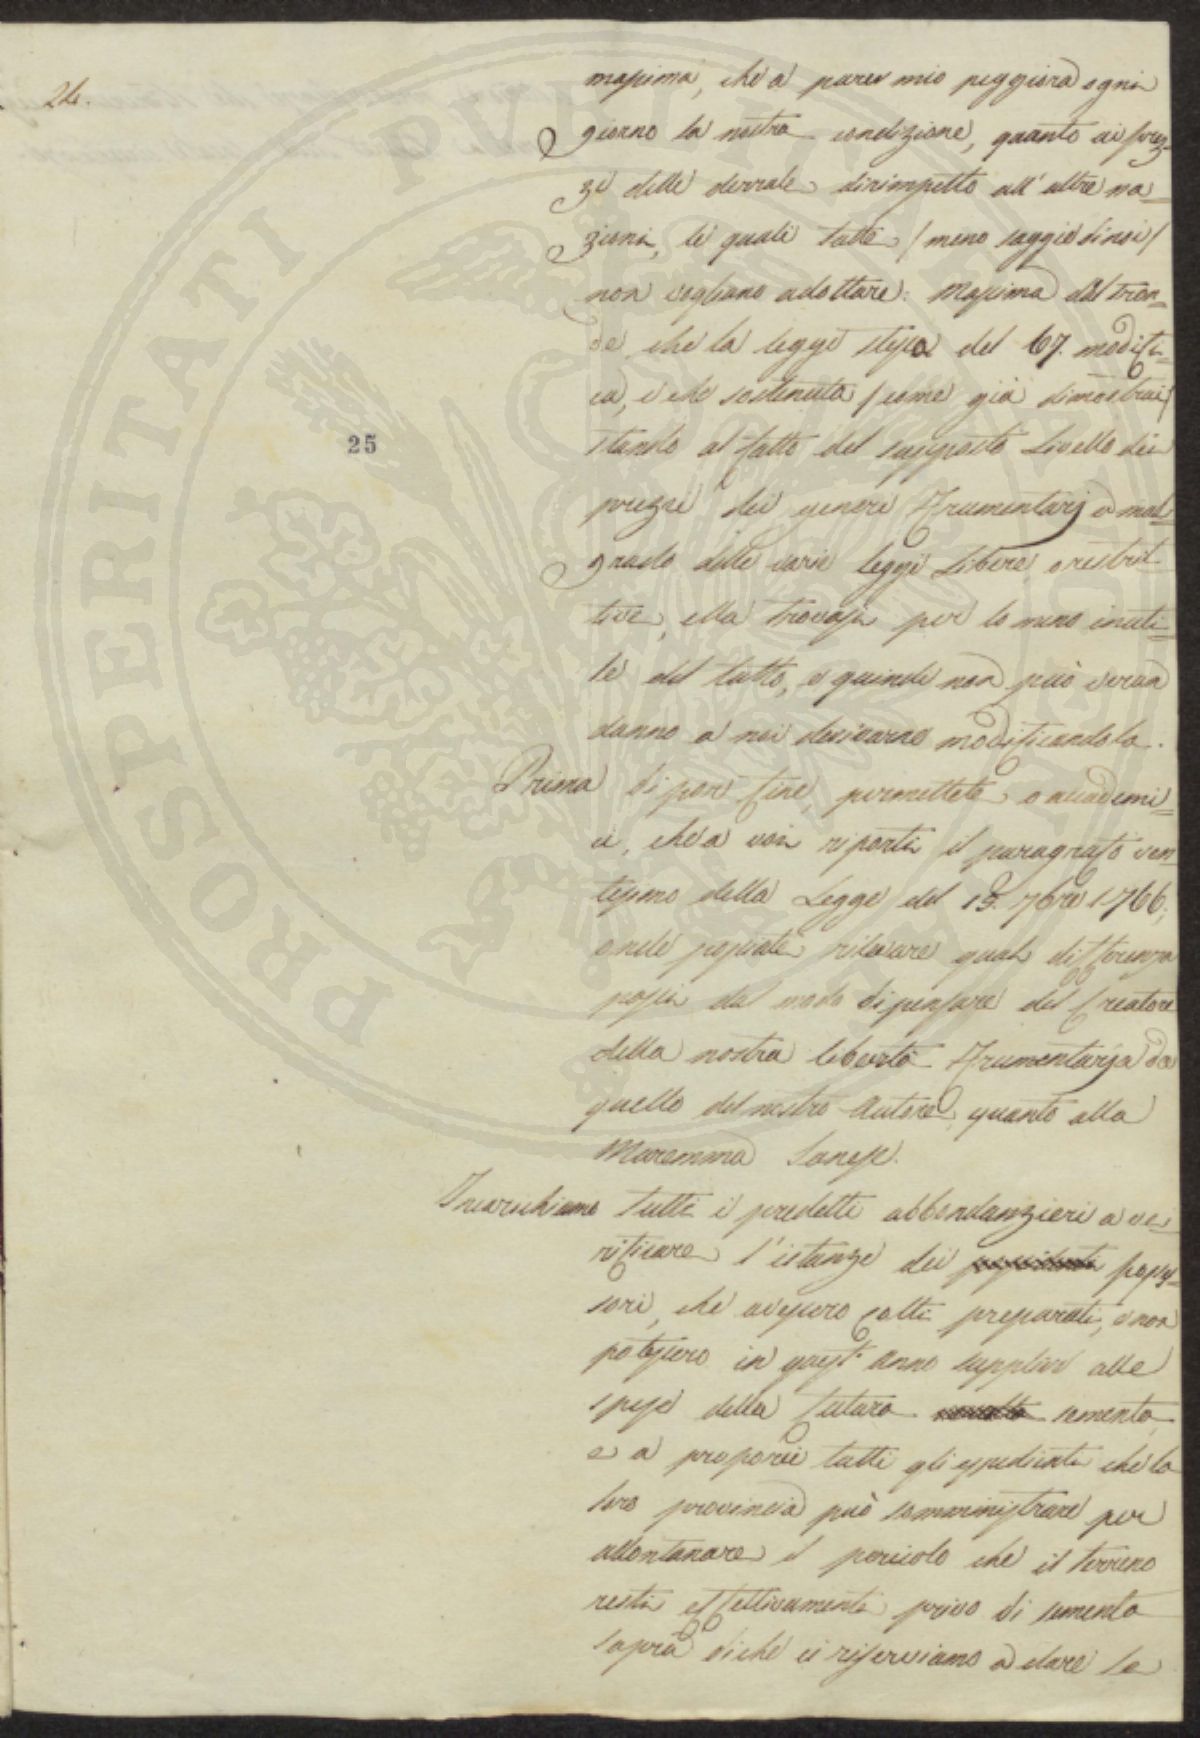 24.
massima, che a parer mio peggiora ogni
giorno la nostra condizione, quanto ai prez-
zi delle derrate dirimpetto all'altre na=
zioni, le quali tutte /meno saggie di noi/
non vogliono adottare: Massima d'altron=
de che la legge stessa del 67. modifi=
ca, e che sostenuta /come già dimostrai/
stando al fatto del supposto Livello dei
prezzi dei generi Frumentarj a mal=
grado delle varie leggi Libere o restrit
tive, ella trovasi per lo meno inuti=
le del tutto, e quindi non può verun
danno a noi derivarne modificandola.
Prima di por fine, permettete o accademi=
ci, che a voi riporti il paragrafo ven=
tesimo della Legge del 15. 7bre 1766;
onde possiate rilevare qual differenza
passi dal modo di pensare del Creatore
della nostra libertà Frumentaria da
quello del nostro Autore, quanto alla
Maremma Sanese.
Incarichiamo tutti i predetti abbondanzieri a ve=
rificare l'istanze dei posses=
sori, che avessero colti preparati, e non
potessero in quest'anno supplire alle
spese della futura sementa,
e a proporci tutti gli espedienti che la
loro provincia può somministrare per
allontanare il pericolo che il terreno
resti effettivamente privo di sementa
sopra di che ci riserviamo a dare le
25
PROSPERITATI PVBLICAE